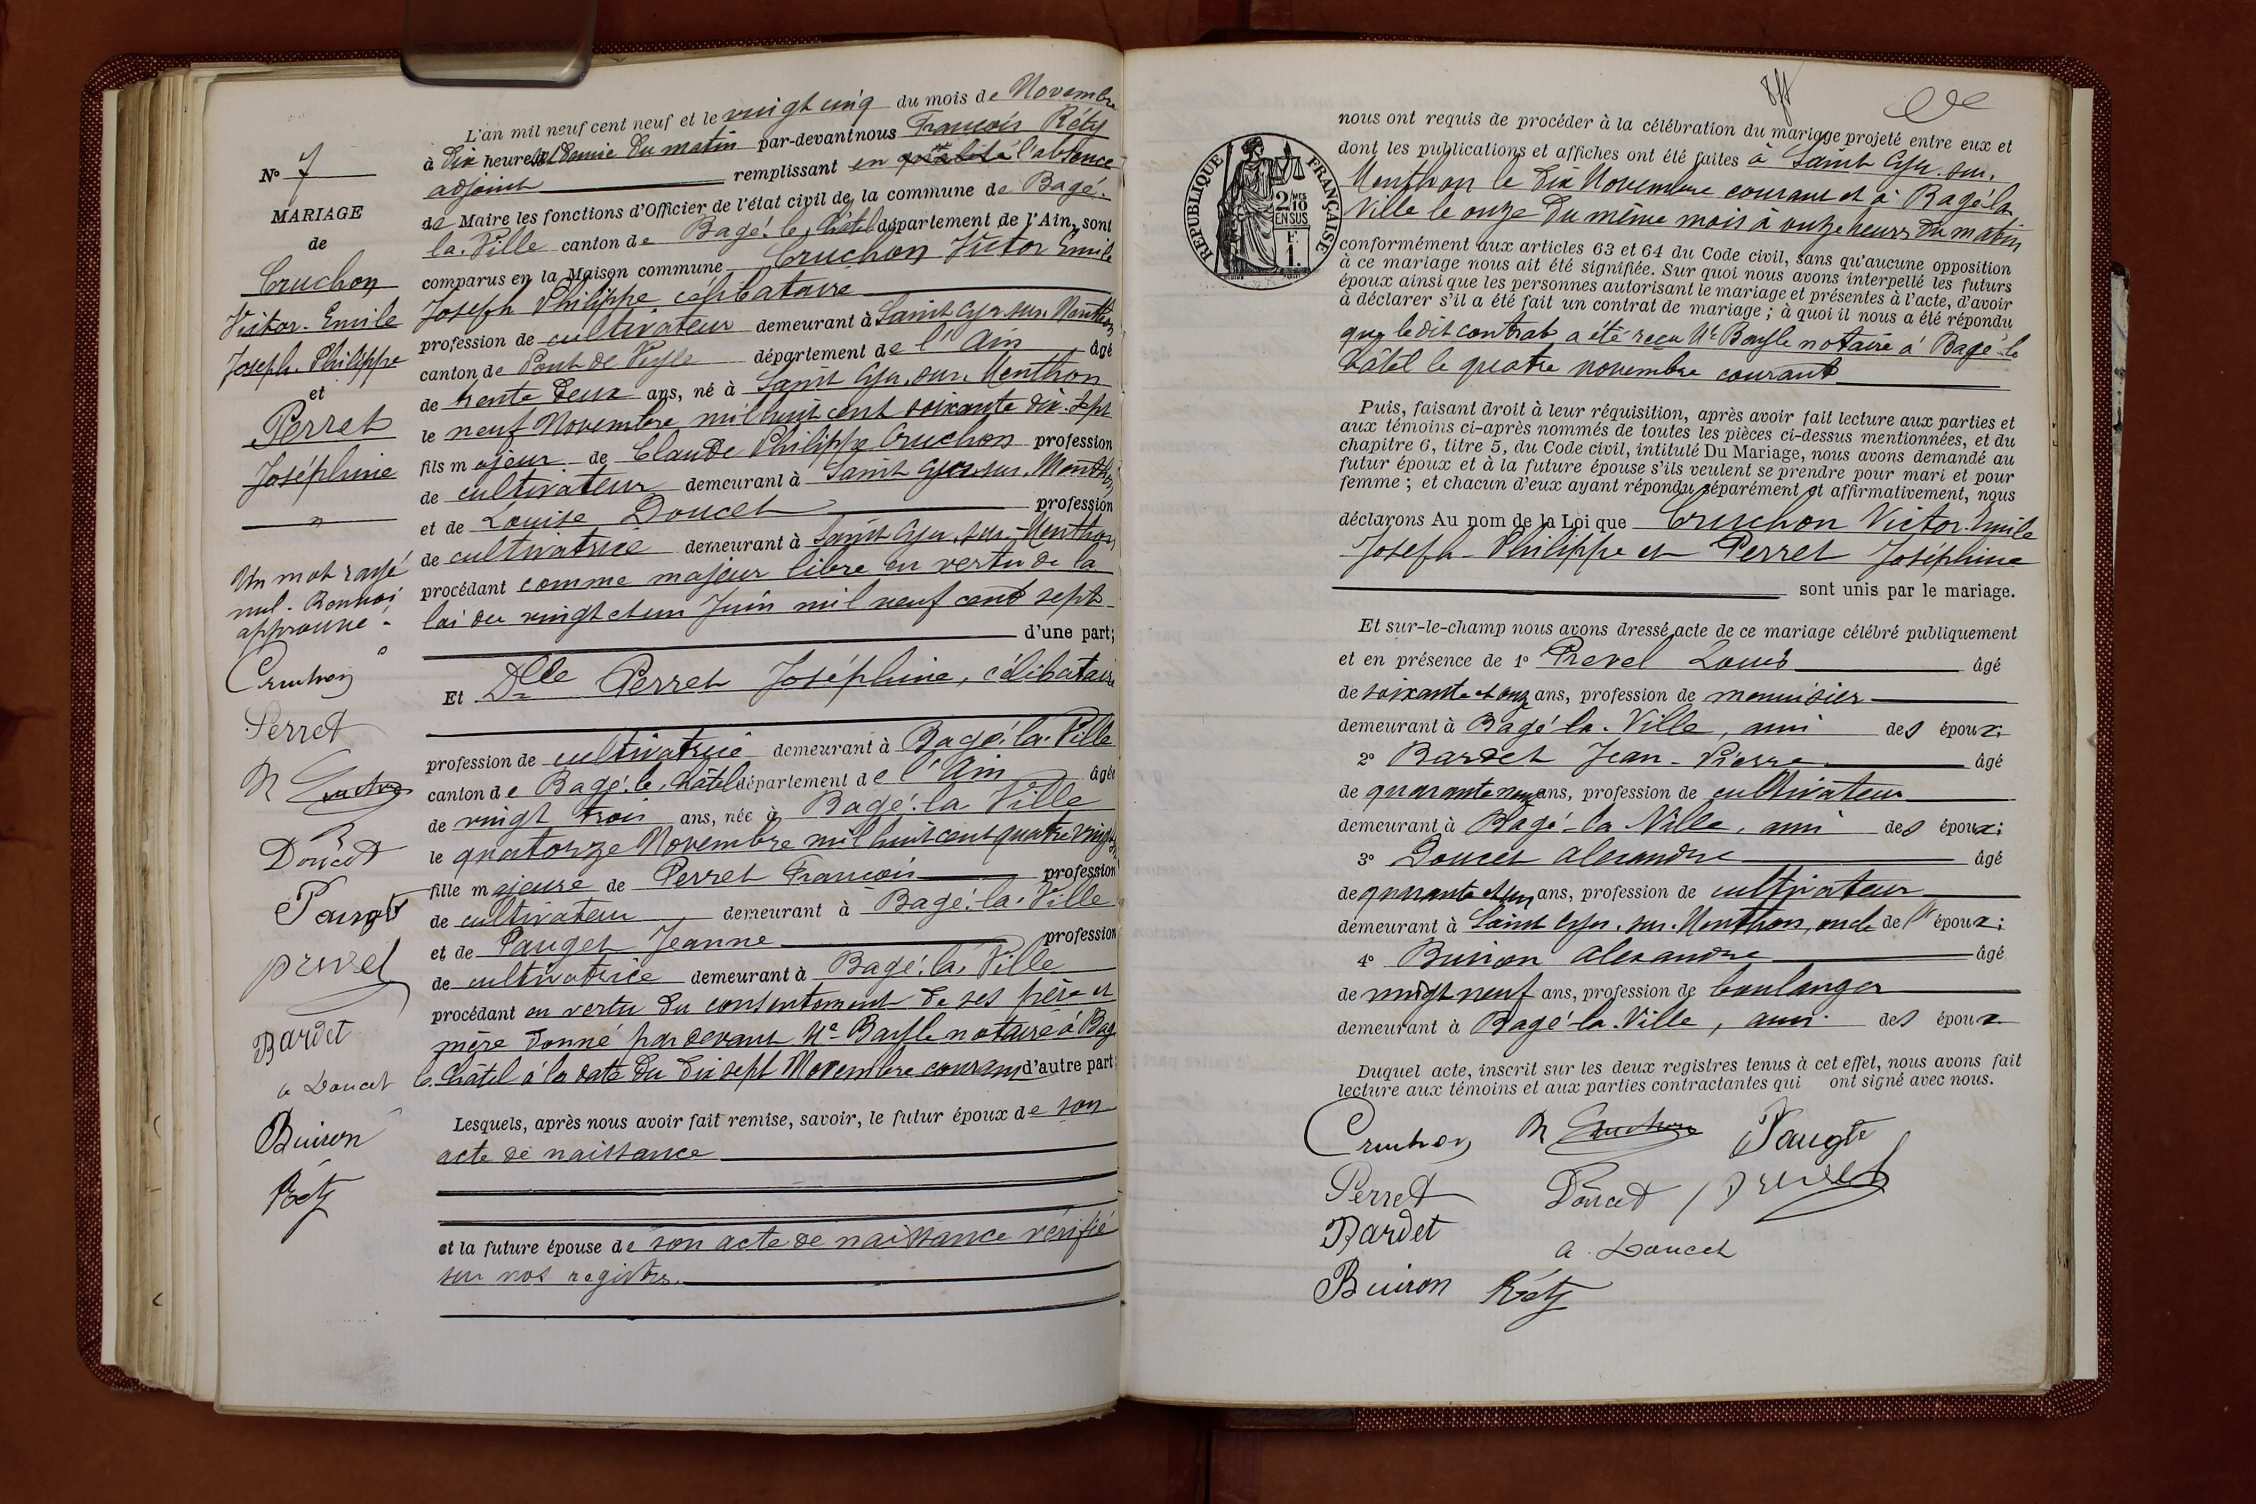 N° 7
MARIAGE
de
Cruchon
Victor-Emile
Joseph-Philippe
et
Perret
Joséphine
"
Un mot rayé
nul. Renvoi
approuvé
Cruchon
Perret
Cruchon
Doucet
Pauget
prevel
Bardet
a Doucet
Buiron
Réty
L'an mil neuf cent neuf et le vingt cinq du mois de Novembre
à dix heures et demie du matin par-devant nous François Réty
adjoint remplissant en l'absence
de Maire les fonctions d'Officier de l'état civil de la commune de Bagé-
la-Ville canton de Bagé-le-Châtel département de l'Ain, sont
comparus en la Maison commune Cruchon Victor Emile
Joseph Philippe célibataire
profession de cultivateur demeurant à Saint Cyr-sur-Menthon
canton de Pont de Veyle département de l'Ain âgé
de trente deux ans, né à Saint Cyr-sur-Menthon
le neuf Novembre mil huit cent soixante dix-sept
fils majeur de Claude Philippe Cruchon profession
de cultivateur demeurant à Saint Cyr-sur-Menthon
et de Louise Doucet profession
de cultivatrice demeurant à Saint Cyr-sur-Menthon
procédant comme majeur libre en vertu de la
loi du vingt et un Juin mil neuf cent sept
d'une part;
Et Dlle Perret Joséphine, célibataire
profession de cultivatrice demeurant à Bagé-la-Ville
canton de Bagé-le-Châtel département de l'Ain âgée
de vingt trois ans, née à Bagé-la-Ville
le quatorze Novembre mil huit cent quatre vingt
fille majeure de Perret François profession
de cultivateur demeurant à Bagé-la-Ville
et de Pauget Jeanne profession
de cultivatrice demeurant à Bagé-la-Ville
procédant en vertu du consentement de ses père et
mère donné par devant Me notaire à Bagé
le Châtel à la date du dix sept Novembre courant d'autre part;
Lesquels, après nous avoir fait remise, savoir, le futur époux de son
acte de naissance
et la future épouse de son acte de naissance vérifié
sur nos registres.
nous ont requis de procéder à la célébration du mariage projeté entre eux et
dont les publications et affiches ont été faites à Saint Cyr-sur-
Menthon le dix Novembre courant et à Bagé-la
Ville le onze du même mois à onze heures du matin
RÉPUBLIQUE FRANÇAISE
2/10 EN SUS
F.
1.
conformément aux articles 63 et 64 du Code civil, sans qu'aucune opposition
à ce mariage nous ait été signifiée. Sur quoi nous avons interpellé les futurs
époux ainsi que les personnes autorisant le mariage et présentes à l'acte, d'avoir
à déclarer s'il a été fait un contrat de mariage ; à quoi il nous a été répondu
que le dit contrat a été reçu Me notaire à Bagé-le
Châtel le quatre novembre courant
Puis, faisant droit à leur réquisition, après avoir fait lecture aux parties et
aux témoins ci-après nommés de toutes les pièces ci-dessus mentionnées, et du
chapitre 6, titre 5, du Code civil, intitulé Du Mariage, nous avons demandé au
futur époux et à la future épouse s'ils veulent se prendre pour mari et pour
femme ; et chacun d'eux ayant répondu séparément et affirmativement, nous
déclarons Au nom de la Loi que Cruchon Victor-Emile
Joseph-Philippe et Perret Joséphine
sont unis par le mariage.
Et sur-le-champ nous avons dressé acte de ce mariage célébré publiquement
et en présence de 1° Prevel Louis âgé
de soixante et onze ans, profession de menuisier
demeurant à Bagé-la-Ville, ami des époux;
2° Bardet Jean-Pierre âgé
de quarante ans, profession de cultivateur
demeurant à Bagé-la Ville, ami des époux;
3° Doucet Alexandre âgé
de quarante et un ans, profession de cultivateur
demeurant à Saint Cyr-sur-Menthon, oncle de l'époux;
4° Buiron Alexandre âgé
de vingt neuf ans, profession de boulanger
demeurant à Bagé-la-Ville, ami des époux
Duquel acte, inscrit sur les deux registres tenus à cet effet, nous avons fait
lecture aux témoins et aux parties contractantes qui ont signé avec nous.
Cruchon Cruchon Pauget
Perret Doucet prevel
Bardet a. Doucet
Buiron Réty